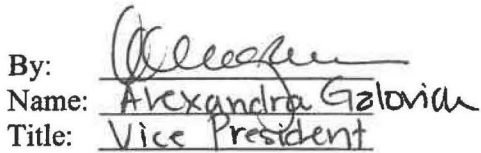 By:
Name: Alexandra Galovich
Title: Vice President